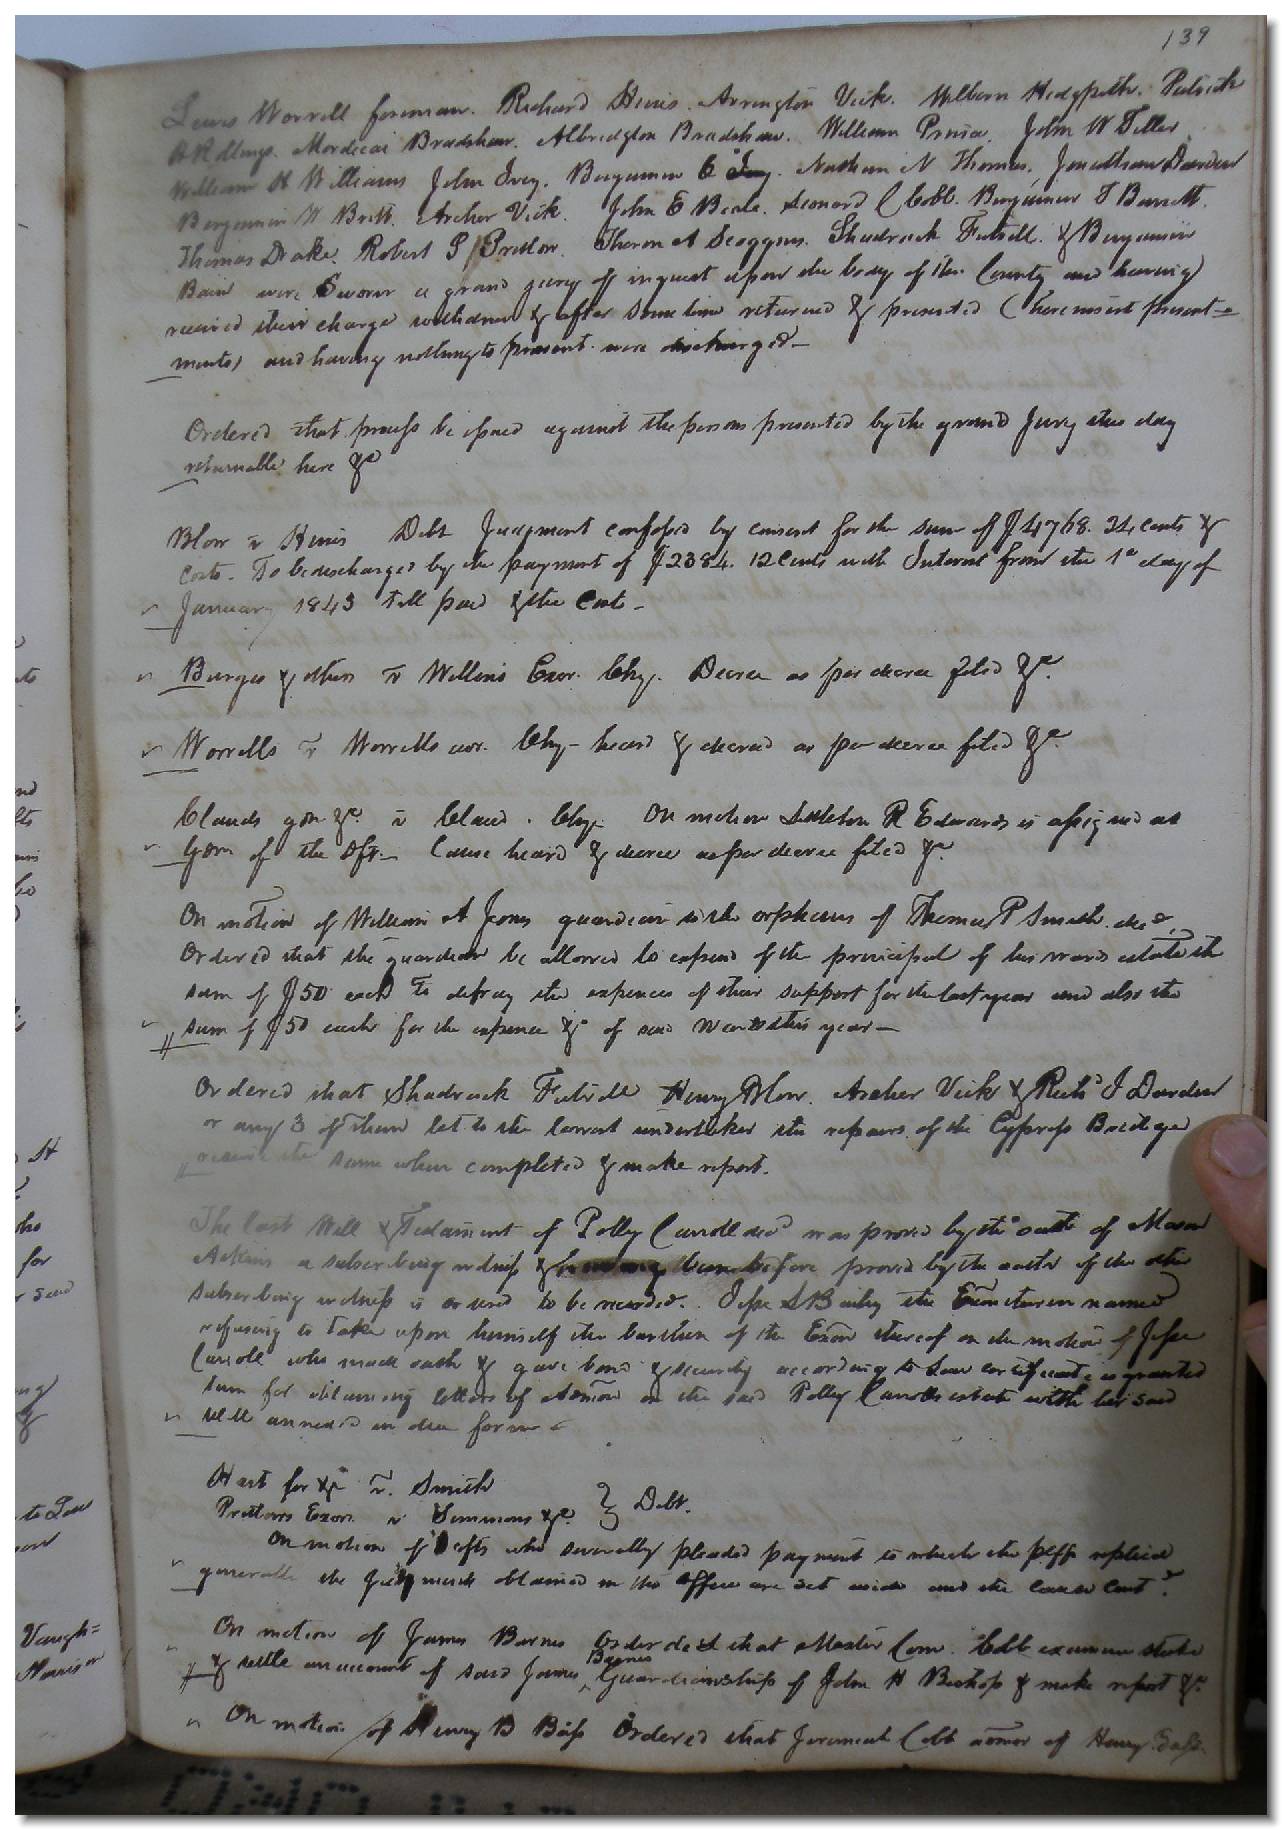 139
Lewis Worrell foreman. Richard Hines. Arrington Vick. Wilborn Hedgpeth. Patrick
Mordicai Bradshaw. Albridgton Bradshaw. William Prince John W Teller
William H Williams John Ivey. Benjamin C Ivey. Nathan N Thomas, Jonathan Darden
Benjamin W Britt. Archer Vick. John E Beale. Leonard C Cobb. Benjamin T Barrett.
Thomas Drake. Robert S Pretlow. Theron A Scoggins. Shadrack Futrell. & Benjamin
Bain were Sworn a grand jury of inquest upon the body of the County and having
received their charge withdrew & after some time returned & presented (here insert present=
ments) and having nothing to present were discharged—
Ordered that process be issued against the persons presented by the grand Jury this day
returnable here &c
Blow v Hines Debt Judgment confessed by consent for the sum of $4768. 24 cents &
Costs. To be discharged by the payment of $2384. 12 Cents with Interest from the 1st day of
January 1843 till paid & the Costs—
Burges & others v Wellons Exor. Chy. Decree as per decree filed &c.
Worrells v Worrells Chy— heard & decreed as per decree filed &c.
Clauds gdn &c. v Claud. Chy. On motion Littleton R Edwards is assigned as
Gdn of the Dft— Cause heard & decree as per decree filed &c.
On motion of William A Jones guardian to the orphans of Thomas P Smith decd.
Ordered that the guardian be allowed to expend of the principal of his wards estate the
sum of $50 each to defray the expences of their support for the last year and also the
sum of $50 each for the expence &c of said Wards this year—
Ordered that Shadrack Futrell Henry Blow. Archer Vick & Richd J Darden
or any 3 of them let to the lowest undertaker the repairs of the Cypress Bridge
receive the same when completed & make report.
The last Will & Testament of Polly Carroll decd was proved by the oath of Mason
Adkins a subscribing witness & having been before proved by the oath of the other
subscribing witness is ordered to be recorded. Jesse S Bailey the Executor named
refusing to take upon himself the burthen of the Exon thereof on the motion of Jesse
Carroll who made oath & gave bond & security according to Law certificate is granted
him for obtaining letters of Admon on the said Polly Carrolls estate with her said
will annexed in due form—
Hart for &c v. Smith
Pretlows Exor. v Simmons &c. } Debt.
On motion of Defts who severally pleaded payment to which the Plffs replied
generally the Judgments obtained in the office are set aside and the cause Contd.
On motion of James Barnes Ordered that Master Com. Cobb examine state
& settle an account of said James Barnes Guardianship of John H Bishop & make report &c.
On motion of Henry B Bass Ordered that Jeremiah Cobb admor of Henry Bass